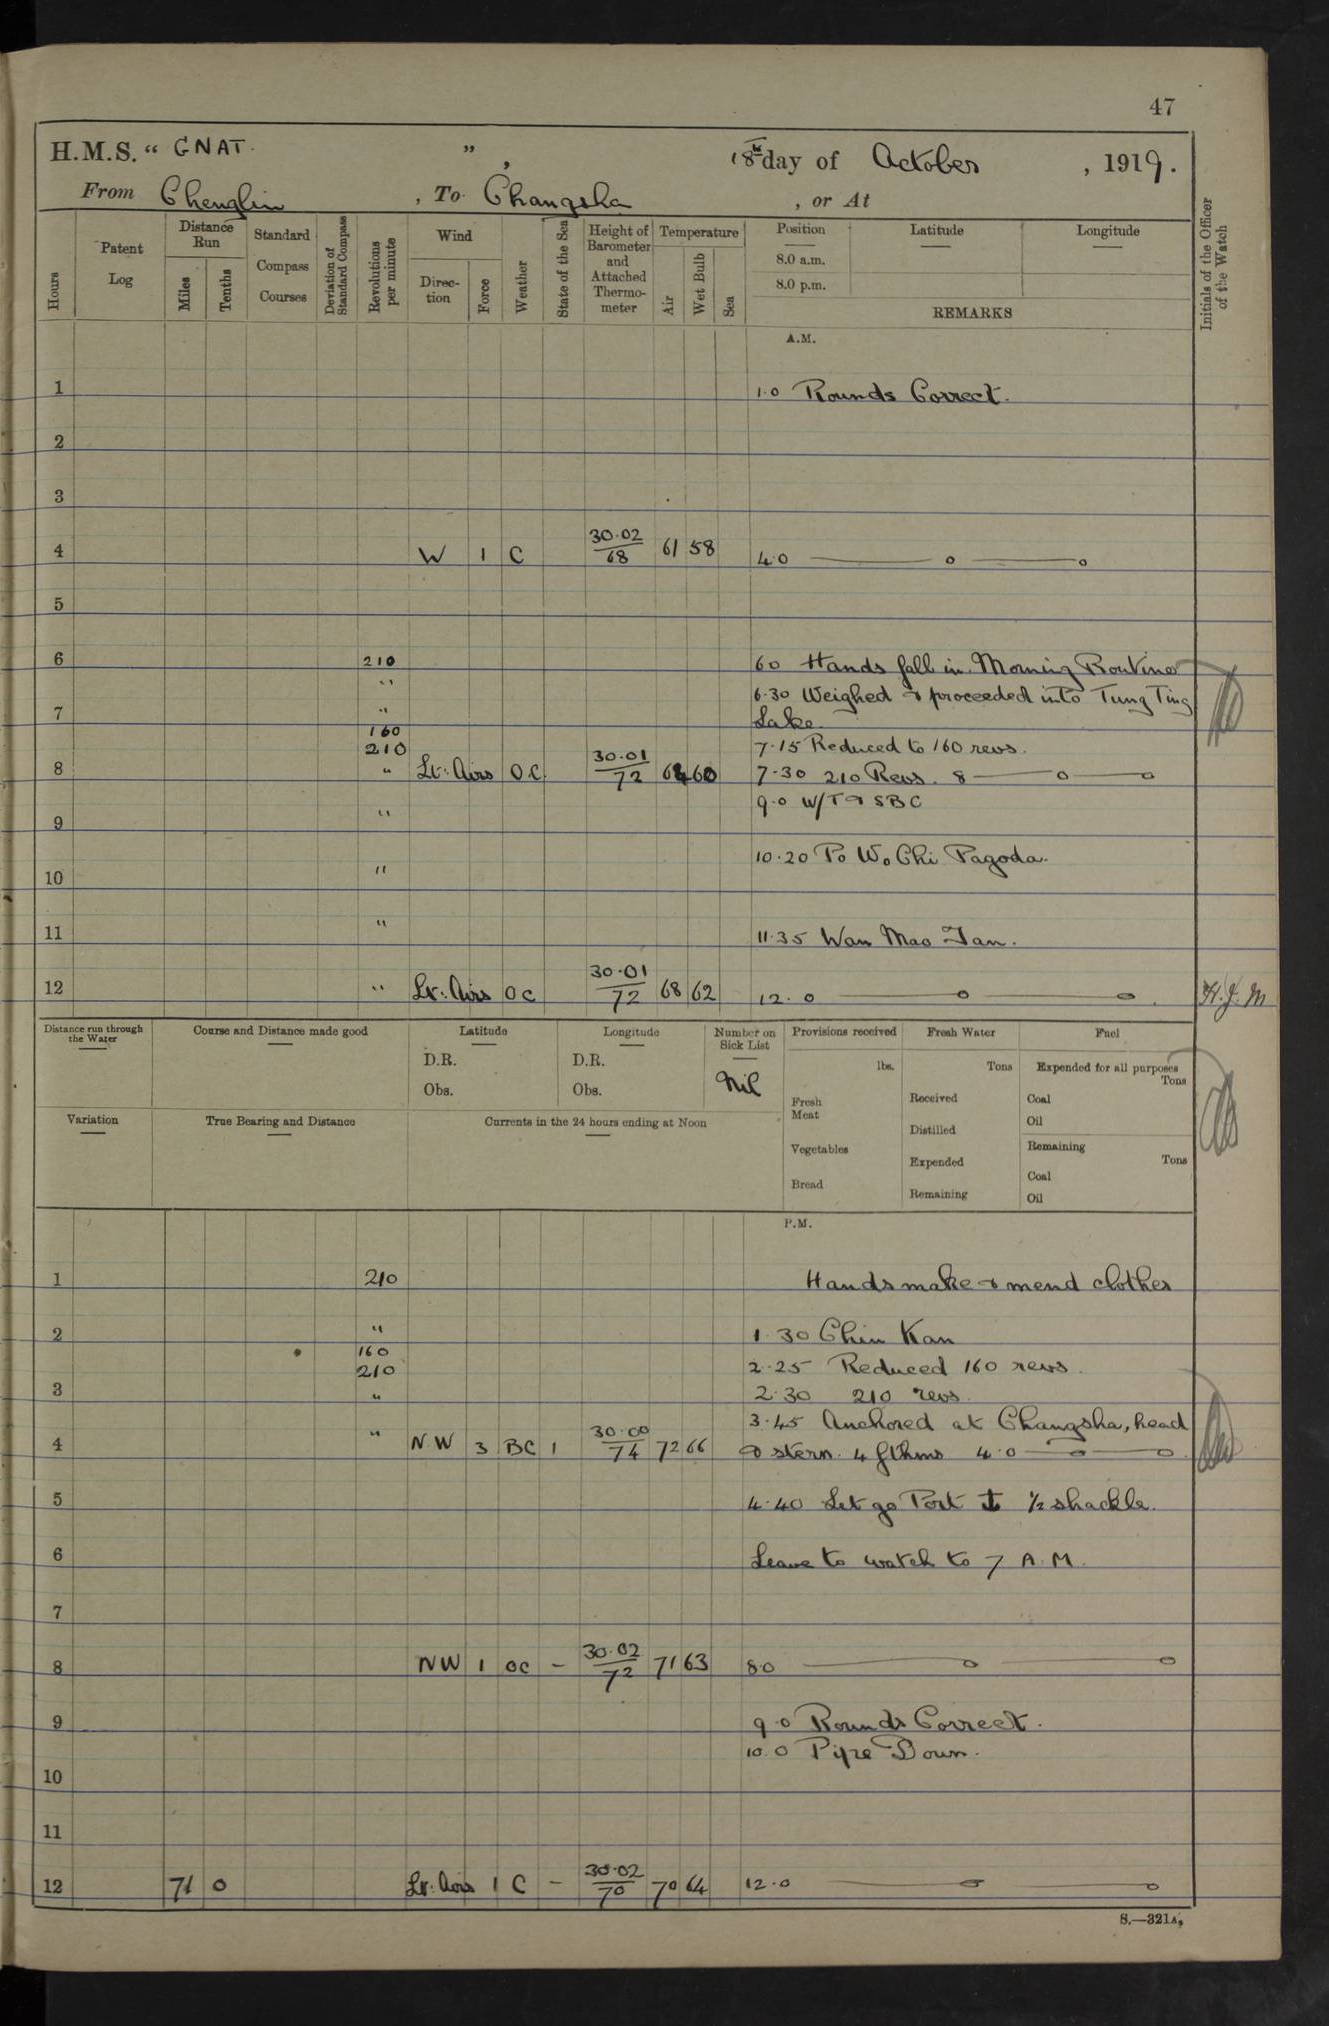 47
H.M.S. “ GNAT. ” , 18th day of October , 1919.
From Chenglin , To Changsha , or At
Hours
Patent Log
Distance Run
Miles
Tenths
Standard Compass Courses
Deviation of Standard Compass
Revolutions per minute
Wind
Direction
Force
Weather
State of the Sea
Height of Barometer and Attached Thermometer
Temperature
Air
Wet Bulb
Sea
Position Latitude Longitude
8.0 a.m.
8.0 p.m.
REMARKS
Initials of the Officer of the Watch
A.M.
1 1.0 Rounds Correct.
2
3
4 W 1 C 30.02/68 61 58 4.0 —— o —— o
5
6 210 6 0 Hands fall in. Morning Routine
" 6.30 Weighed & proceeded into Tung Ting
7 " Lake.
160 7.15 Reduced to 160 revs.
210
8 " Lt: Airs O.C. 30.01/72 64 60 7.30 210 Revs. 8 —— o —— o
9.0 W/T & SBC
9 "
10.20 Po Wo Chi Pagoda.
10 "
11 " 11.35 Wan Mao Tan.
12 " Lt: Airs OC 30.01/72 68 62 12.0 —— o —— o . H.J.M
Distance run through the Water
Course and Distance made good
Latitude
D.R.
Obs.
Longitude
D.R.
Obs.
Number on Sick List
Nil
Provisions received
lbs.
Fresh Meat
Vegetables
Bread
Fresh Water
Tons
Received
Distilled
Expended
Remaining
Fuel
Expended for all purposes
Tons
Coal
Oil
Remaining
Tons
Coal
Oil
Variation
True Bearing and Distance
Currents in the 24 hours ending at Noon
P.M.
1 210 Hands make & mend clothes
2 " 1.30 Chin Kan
160 2.25 Reduced 160 revs.
210
3 " 2.30 210 revs.
3.45 Anchored at Changsha, head
4 " NW 3 BC 1 30.00/74 72 66 & stern. 4 fthms 4.0 —— o —— o
5 4.40 Let go Port ⚓ ½ shackle.
6 Leave to watch to 7 A.M.
7
8 NW 1 OC – 30.02/72 71 63 8.0 —— o —— o
9 9.0 Rounds Correct.
10.0 Pipe Down.
10
11
12 71 0 Lt: Airs 1 C – 30.02/70 70 64 12.0 —— o —— o
S.—321A.